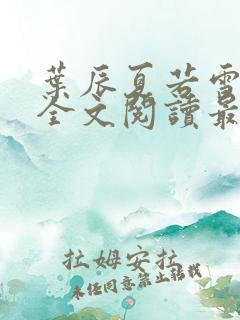 葉辰夏若雪
全文閱讀最
拉姆安拉
未經同意禁止轉載